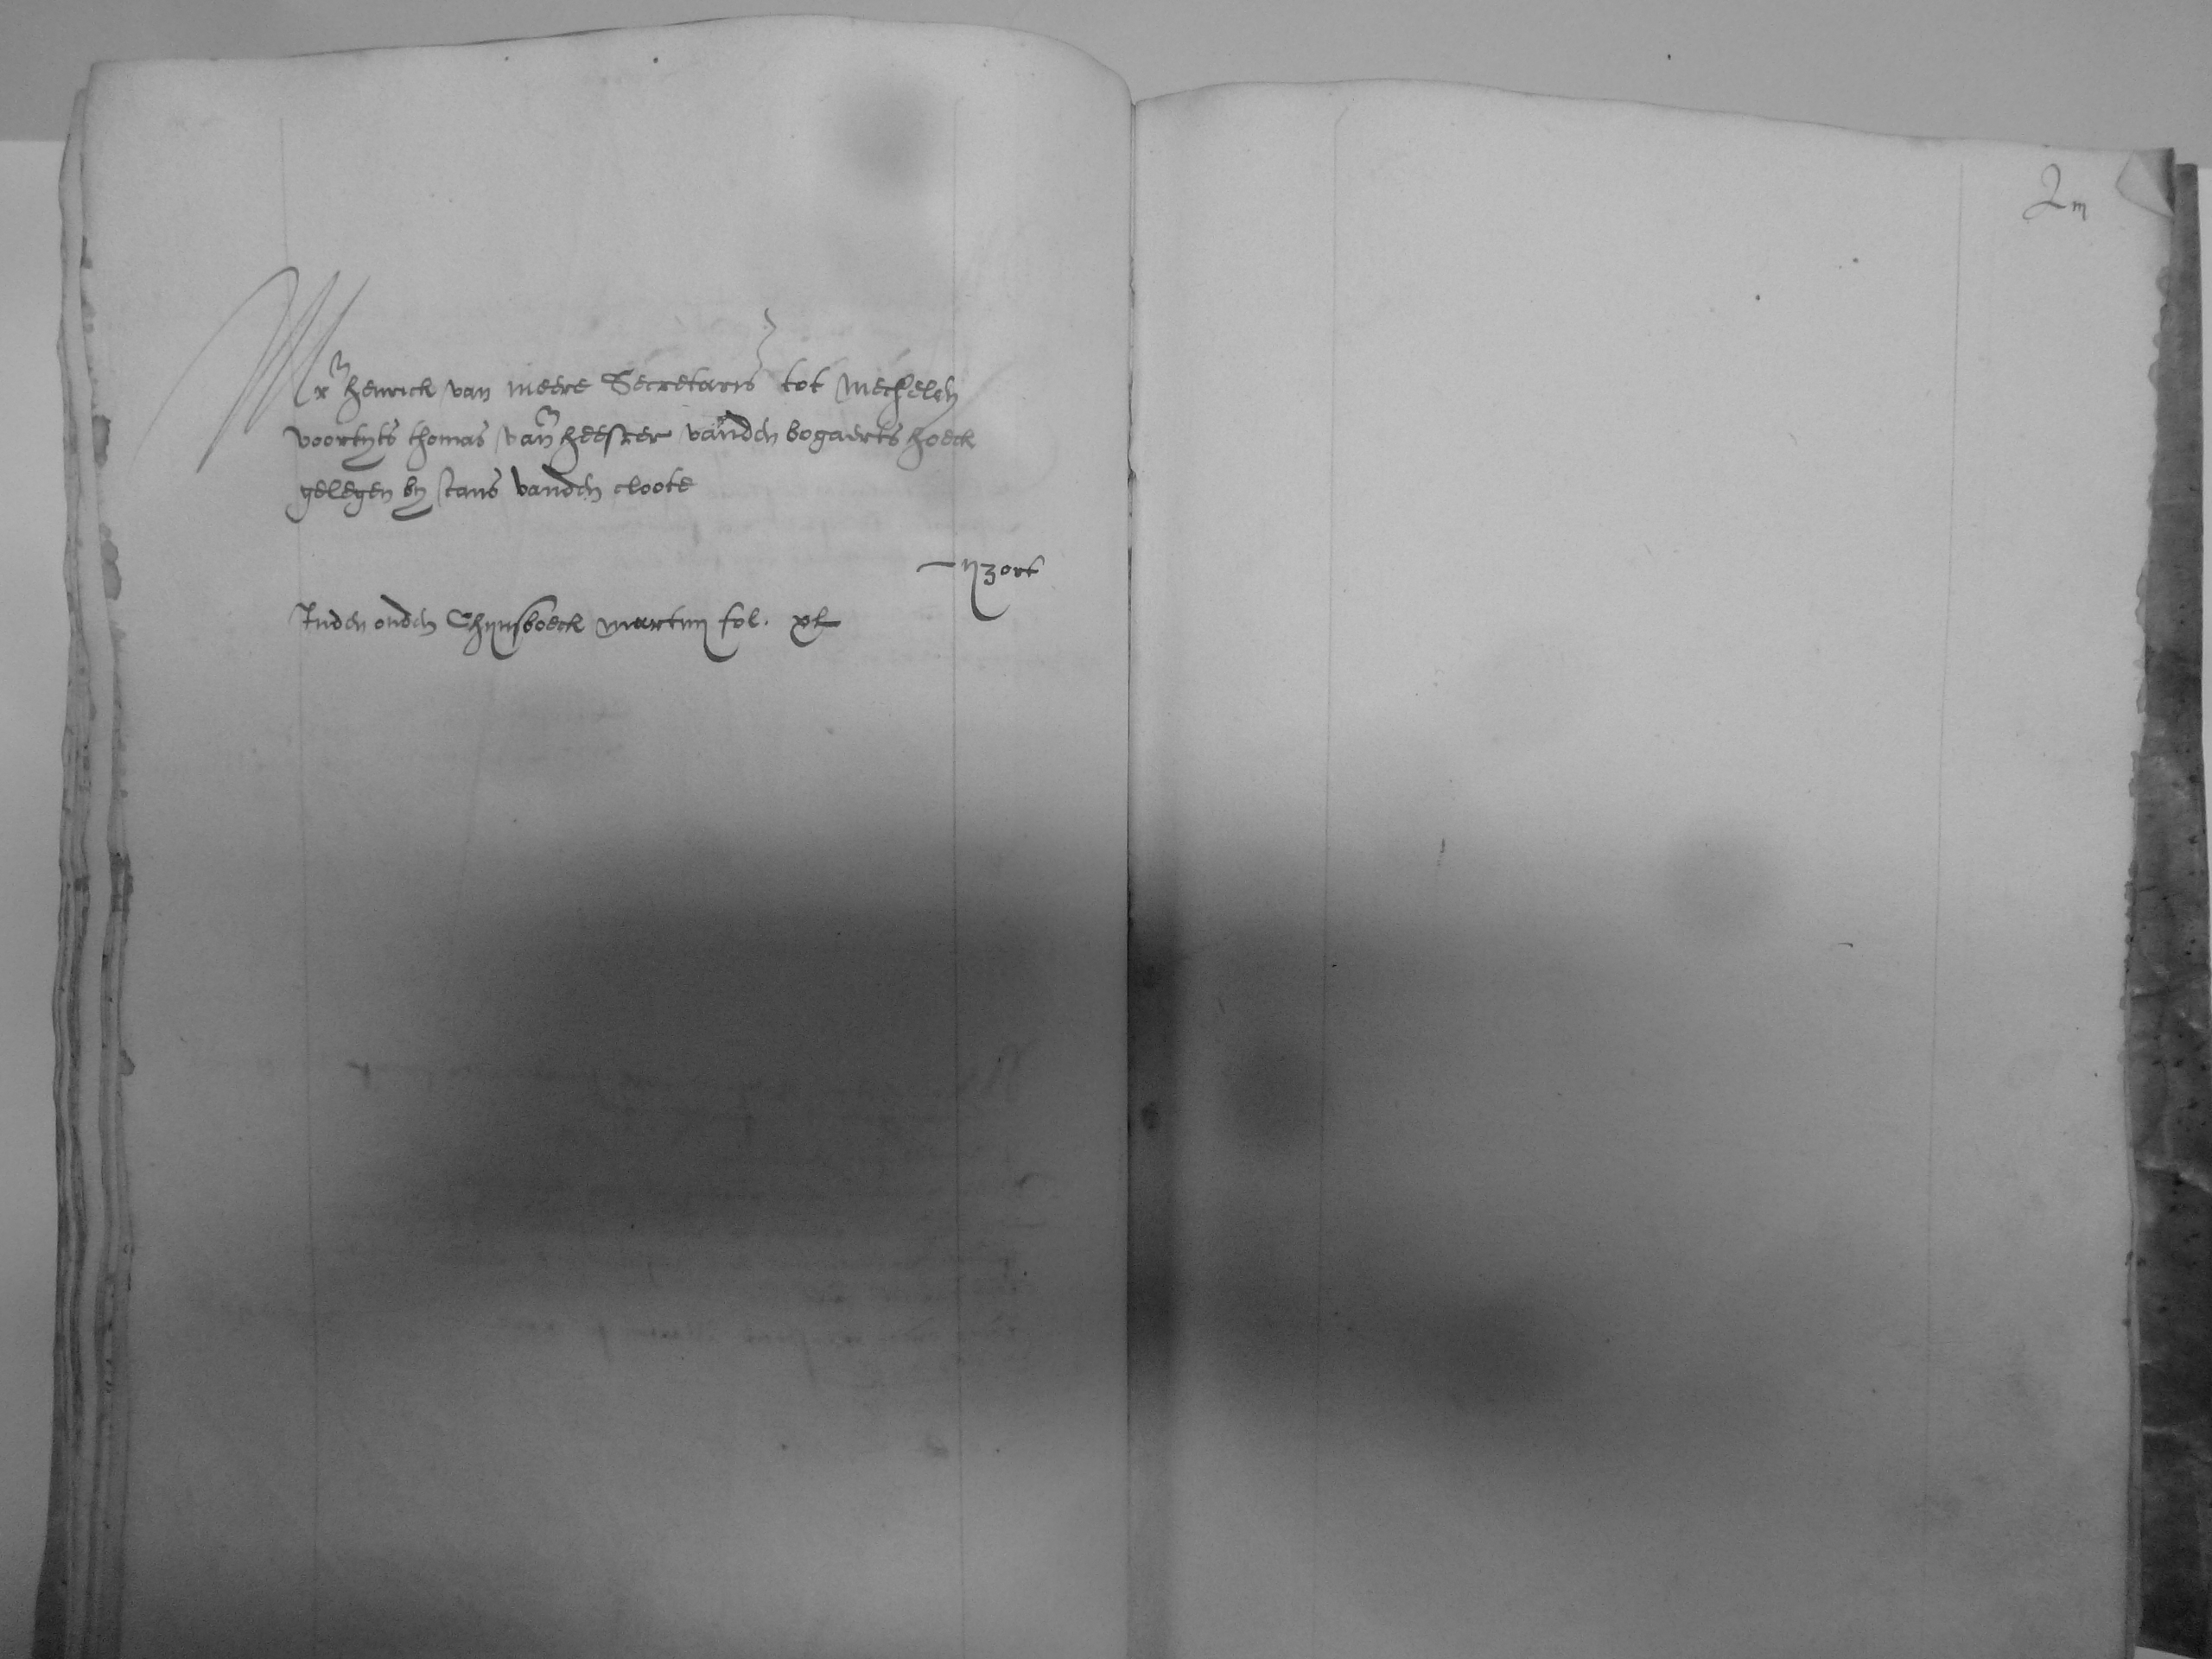 Mr henrick van meere Secretaris tot mechelen
voortyts thomas van heester vanden bogaerts hoeck
gelegen by stans vanden cloote
ij 3 ort
Inden ouden Chijnsboeck martini fol. xl